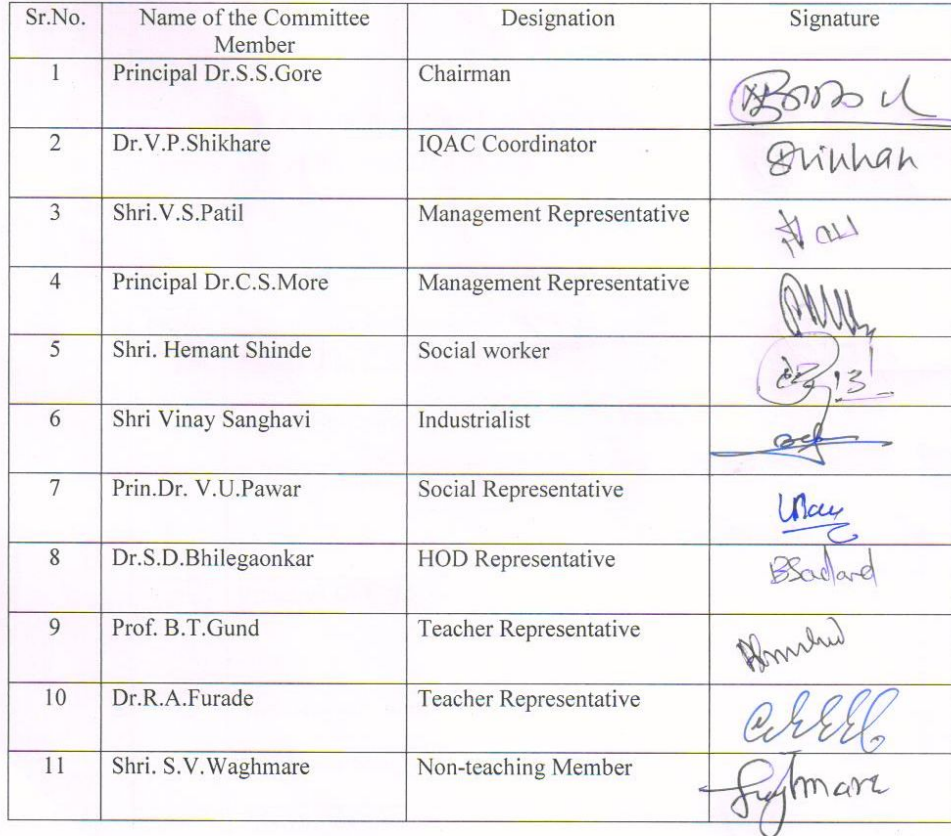 Sr.No. Name of the Committee Member Designation Signature
1 Principal Dr.S.S.Gore Chairman
2 Dr.V.P.Shikhare IQAC Coordinator
3 Shri.V.S.Patil Management Representative
4 Principal Dr.C.S.More Management Representative
5 Shri. Hemant Shinde Social worker
6 Shri Vinay Sanghavi Industrialist
7 Prin.Dr. V.U.Pawar Social Representative
8 Dr.S.D.Bhilegaonkar HOD Representative
9 Prof. B.T.Gund Teacher Representative
10 Dr.R.A.Furade Teacher Representative
11 Shri. S.V.Waghmare Non-teaching Member